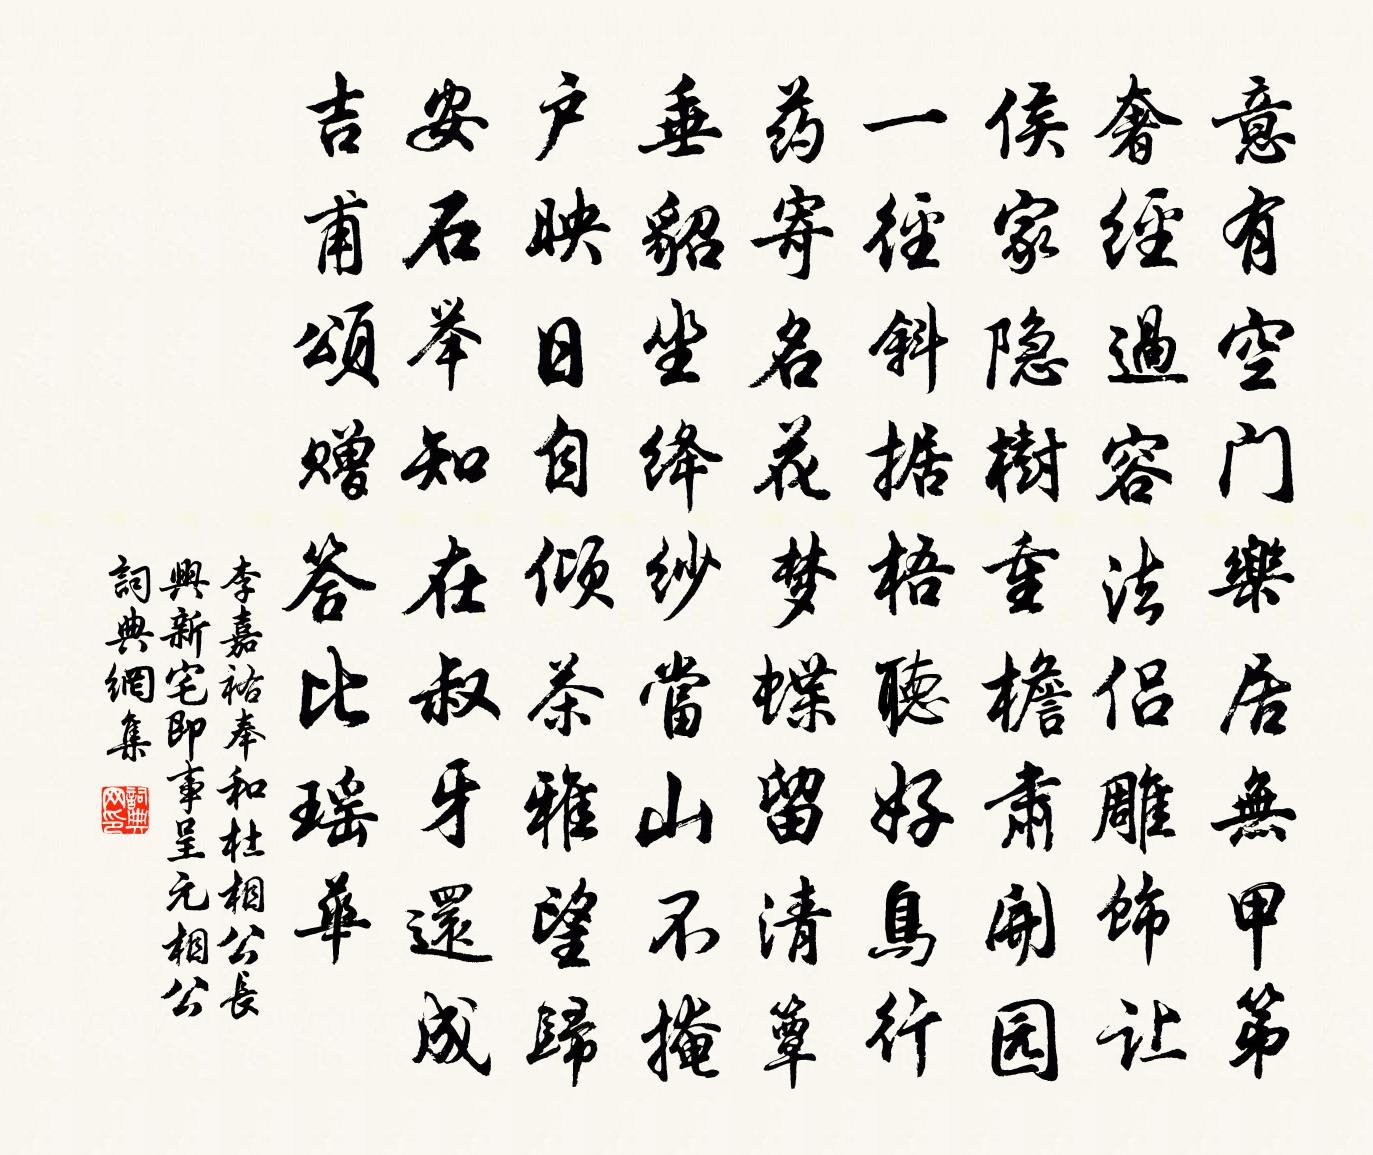 意有空门樂居無甲第
奢經過容法侣雕飾让
侯家隐樹重檐肃開园
一徑斜据梧聽好鳥行
药寄名花梦蝶留清簟
垂貂坐绛纱當山不掩
户映日自傾茶雅望歸
安石举知在叔牙還成
吉甫頌赠答比瑶華
李嘉祐奉和杜相公長
興新宅即事呈元相公
詞典網集
詞典网印